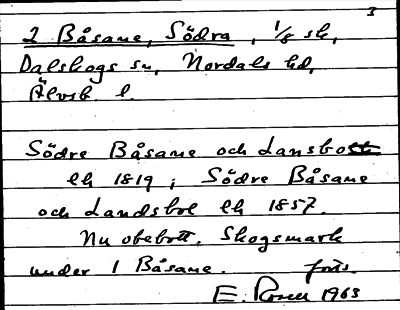 3
2 Båsane, Södra, 1/8 sk,
Dalskogs sn, Nordals hd,
Älvsb. l.
Södre Båsane och Lansbo
lk 1819; Södre Båsane
och Landsbol lk 1857.
Nu obebott. Skogsmark
under 1 Båsane. forts.
E. Rosell 1963